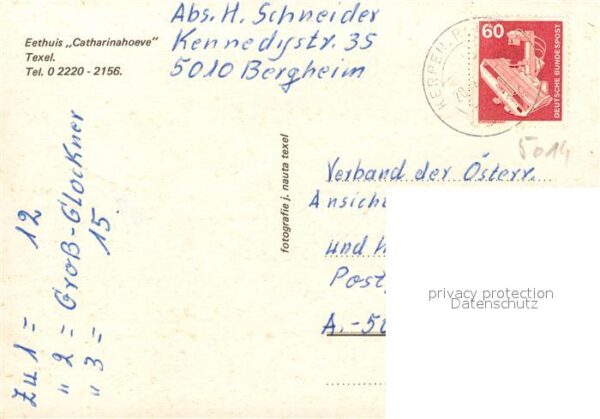 Eethuis „Catharinahoeve"
Texel.
Tel. 0 2220 - 2156.
Abs. H. Schneider
Kennedystr. 35
5010 Bergheim
60
DEUTSCHE BUNDESPOST
KERPEN
5014
fotografie j. nauta texel
Verband der Österr.
Ansicht
und
Post
A.-50
Zu 1 = 12
" 2 = Groß-Glockner
" 3 = 15
privacy protection
Datenschutz